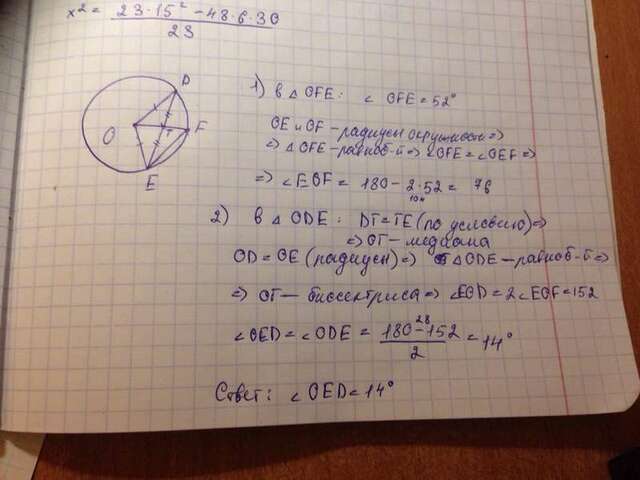 x² = 23·15² - 48·6·30
23
D
O
T
F
E
1) в △ OFE: ∠ OFE = 52°
OE и OF - радиусы окружности ⇒
⇒ △ OFE - равноб-й ⇒ ∠OFE = ∠OEF ⇒
⇒ ∠EOF = 180 - 2·52 = 76
104
2) в △ ODE: DT = TE (по условию) ⇒
⇒ OT - медиана
OD = OE (радиусы) ⇒ △ ODE - равноб-й ⇒
⇒ OT - биссектриса ⇒ ∠EOD = 2∠EOF = 152
28
∠OED = ∠ODE = 180 - 152 = 14°
2
Ответ: ∠OED = 14°